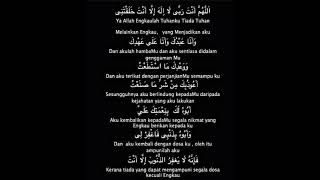 اَللّٰهُمَّ اَنْتَ رَبِّى لَا اِلٰهَ اِلَّا اَنْتَ خَلَقْتَنِى
Ya Allah Engkaulah Tuhanku Tiada Tuhan
Melainkan Engkau, yang Menjadikan aku
وَاَنَا عَبْدُكَ وَاَنَا عَلَي عَهْدِكَ
Dan akulah hambaMu dan aku sentiasa didalam genggaman Mu
وَوَعْدِكَ مَا اسْتَطَعْتُ
Dan aku terikat dengan perjanjianMu semampu ku
اَعُوْذُبِكَ مِنْ شَرِّ مَا صَنَعْتُ
Sesungguhnya aku berlindung kepadaMu daripada
kejahatan yang aku lakukan
اَبُوْءُ لَكَ بِنِعْمَتِكَ عَلَيَّ
Aku kembalikan kepadaMu segala nikmat yang
Engkau berikan kepada ku
وَاَبُوْءُ بِذَنْبِى فَاغْفِرْ لِى
Dan aku kembali dengan dosa ku , oleh itu
ampunilah aku
فَاِنَّهُ لَا يَغْفِرُ الذُّنُوْبَ اِلَّا اَنْتَ
Kerana tiada yang dapat mengampuni segala dosa
kecuali Engkau